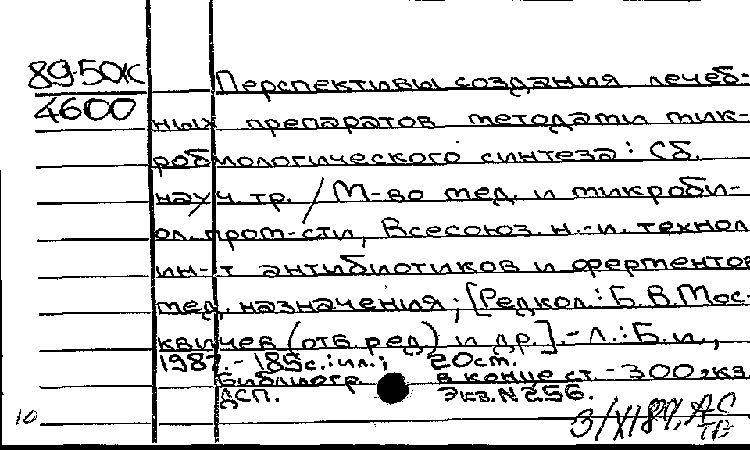 89-50К
4600
Перспективы создания лечеб-
ных препаратов методами мик-
робиологического синтеза: Сб.
науч. тр. / М-во мед. и микроби-
ол. пром-сти, Всесоюз. н.-и. технол.
ин-т антибиотиков и ферментов
мед. назначения; [Редкол.: Б.В. Мос-
квичев (отв. ред) и др.].- Л.: Б.и.,
1987.- 185с.: ил.; 20см.
Библиогр. в конце ст. - 300 экз.
ДСП. Экз. N 256.
10